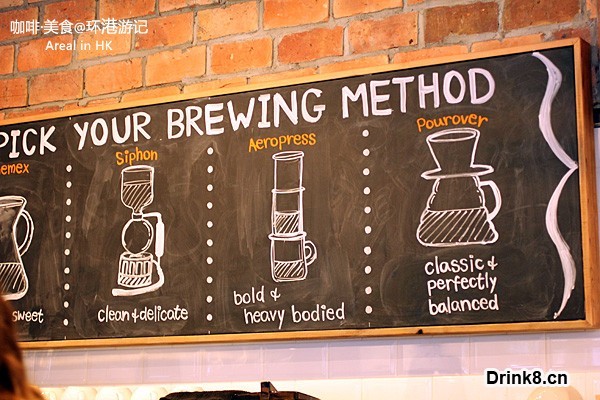 咖啡·美食@环港游记
Areal in HK
PICK YOUR BREWING METHOD
emex
sweet
Siphon
clean & delicate
Aeropress
bold &
heavy bodied
Pourover
classic &
perfectly
balanced
Drink8.cn